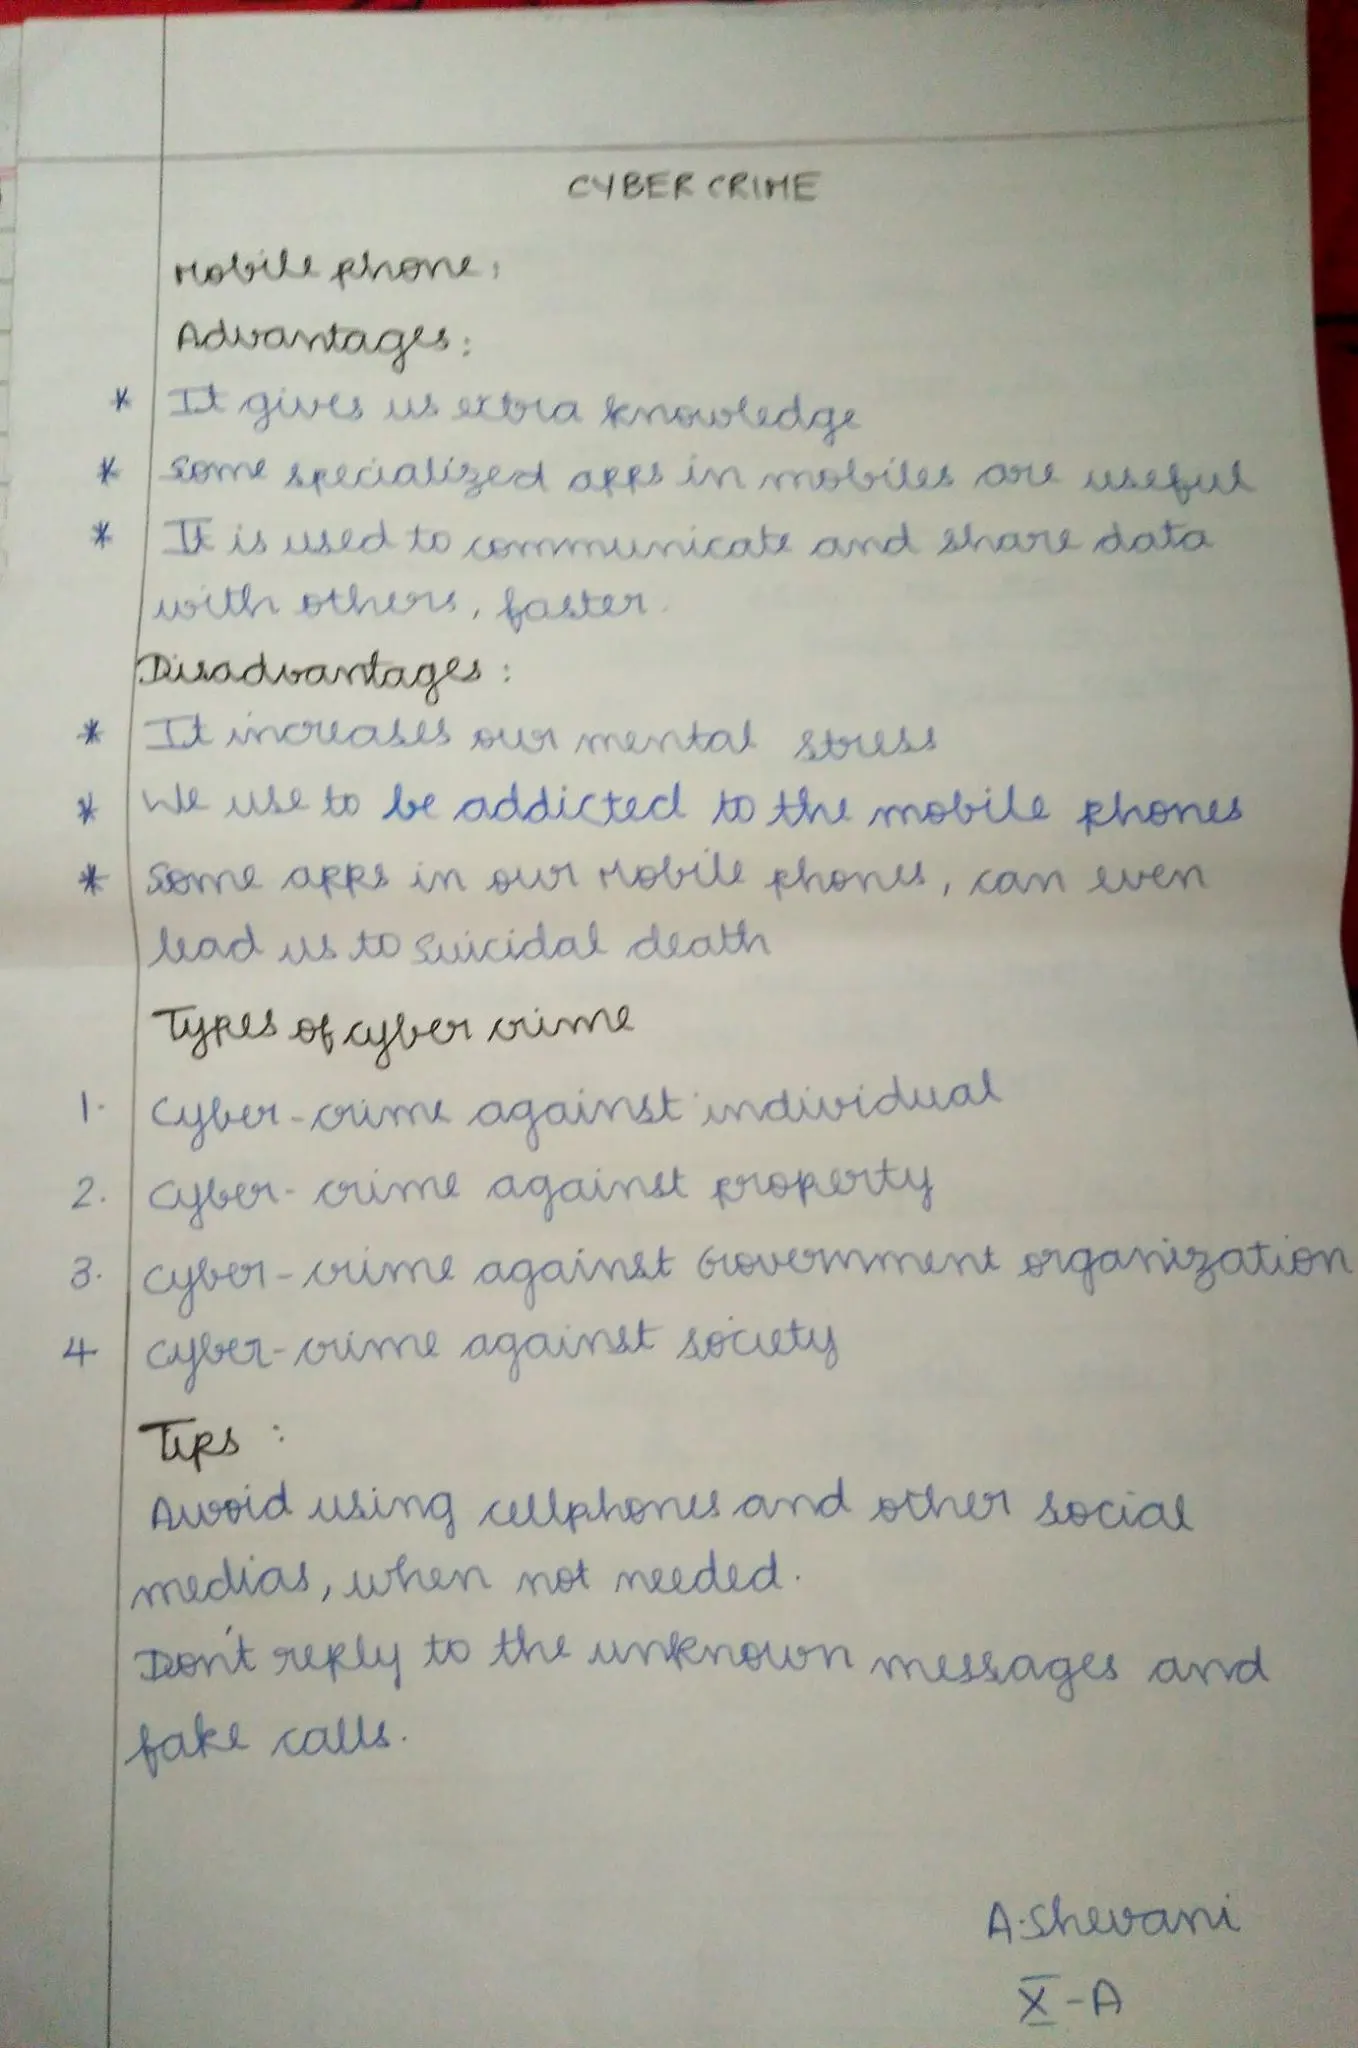 CYBER CRIME
Mobile phone:
Advantages:
* It gives us extra knowledge
* Some specialized apps in mobiles are useful
* It is used to communicate and share data
with others, faster.
Disadvantages:
* It increases our mental stress
* We use to be addicted to the mobile phones
* Some apps in our Mobile phones, can even
lead us to suicidal death
Types of cyber crime
1. Cyber-crime against individual
2. Cyber-crime against property
3. Cyber-crime against Government organization
4 Cyber-crime against society
Tips:
Avoid using cellphones and other social
medias, when not needed.
Don't reply to the unknown messages and
fake calls.
A.Shevani
X-A